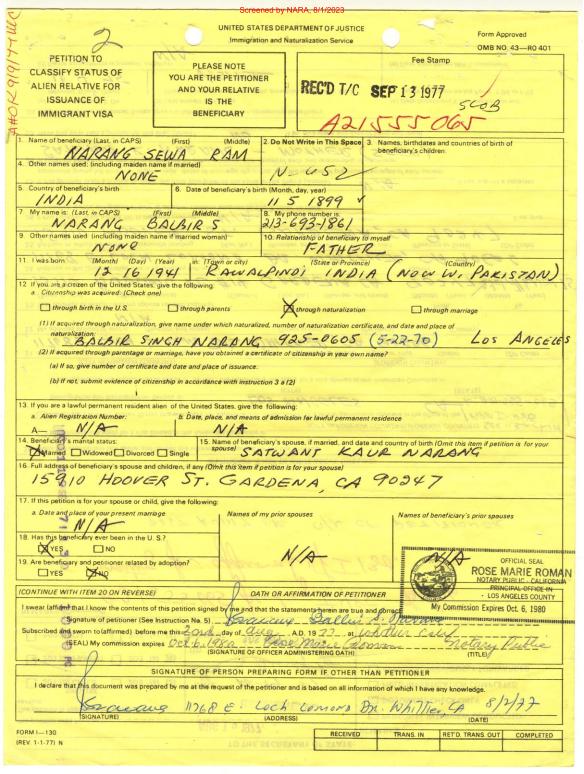 Screened by NARA, 8/1/2023
2
UNITED STATES DEPARTMENT OF JUSTICE
Immigration and Naturalization Service
Form Approved
OMB NO. 43—RO 401
PETITION TO
CLASSIFY STATUS OF
ALIEN RELATIVE FOR
ISSUANCE OF
IMMIGRANT VISA
PLEASE NOTE
YOU ARE THE PETITIONER
AND YOUR RELATIVE
IS THE
BENEFICIARY
Fee Stamp
REC'D T/C SEP 13 1977
A21555065
1. Name of beneficiary (Last, in CAPS) (First) (Middle)
NARANG SEWA RAM
2. Do Not Write in This Space
N-452
3. Names, birthdates and countries of birth of beneficiary's children:
4. Other names used: (including maiden name if married)
NONE
5. Country of beneficiary's birth
INDIA
6. Date of beneficiary's birth (Month, day, year)
11 5 1899
7. My name is: (Last, in CAPS) (First) (Middle)
NARANG BALBIR S
8. My phone number is:
213-693-1861
9. Other names used (including maiden name if married woman)
NONE
10. Relationship of beneficiary to myself
FATHER
11. I was born (Month) (Day) (Year) in: (Town or city) (State or Province) (Country)
12 16 1941 RAWALPINDI INDIA (NOW W. PAKISTAN)
12. If you are a citizen of the United States, give the following:
a. Citizenship was acquired: (Check one)
through birth in the U.S. through parents X through naturalization through marriage
(1) If acquired through naturalization, give name under which naturalized, number of naturalization certificate, and date and place of
naturalization:
BALBIR SINGH NARANG 925-0605 (5-22-70) LOS ANGELES
(2) If acquired through parentage or marriage, have you obtained a certificate of citizenship in your own name?
(a) If so, give number of certificate and date and place of issuance:
(b) If not, submit evidence of citizenship in accordance with instruction 3 a (2)
13. If you are a lawful permanent resident alien of the United States, give the following:
a. Alien Registration Number: b. Date, place, and means of admission for lawful permanent residence
A— N/A N/A
14. Beneficiary's marital status:
X Married Widowed Divorced Single
15. Name of beneficiary's spouse, if married, and date and country of birth (Omit this item if petition is for your spouse)
SATWANT KAUR NARANG
16. Full address of beneficiary's spouse and children, if any (Omit this item if petition is for your spouse)
15910 HOOVER ST. GARDENA, CA 90247
17. If this petition is for your spouse or child, give the following:
a. Date and place of your present marriage Names of my prior spouses Names of beneficiary's prior spouses
N/A N/A N/A
18. Has this beneficiary ever been in the U.S.?
X YES NO
19. Are beneficiary and petitioner related by adoption?
YES X NO
OFFICIAL SEAL
ROSE MARIE ROMAN
NOTARY PUBLIC - CALIFORNIA
PRINCIPAL OFFICE IN
LOS ANGELES COUNTY
My Commission Expires Oct. 6, 1980
(CONTINUE WITH ITEM 20 ON REVERSE) OATH OR AFFIRMATION OF PETITIONER
I swear (affirm) that I know the contents of this petition signed by me and that the statements herein are true and correct.
Signature of petitioner (See Instruction No. 5)
Subscribed and sworn to (affirmed) before me this 2nd day of Aug, A.D. 1977 at Whittier Calif
(SEAL) My commission expires Oct 6, 1980 Rose Marie Roman Notary Public
(SIGNATURE OF OFFICER ADMINISTERING OATH) (TITLE)
SIGNATURE OF PERSON PREPARING FORM IF OTHER THAN PETITIONER
I declare that this document was prepared by me at the request of the petitioner and is based on all information of which I have any knowledge.
11768 E. Loch Lomond Dr. Whittier, CA 8/2/77
(SIGNATURE) (ADDRESS) (DATE)
FORM I—130
(REV. 1-1-77) N
RECEIVED TRANS. IN RET'D. TRANS. OUT COMPLETED